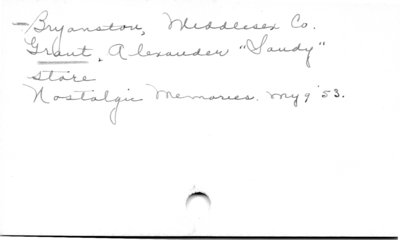 - Bryanston, Middlesex Co.
Grant, Alexander "Sandy"
store
Nostalgic Memories. My 9 '53.